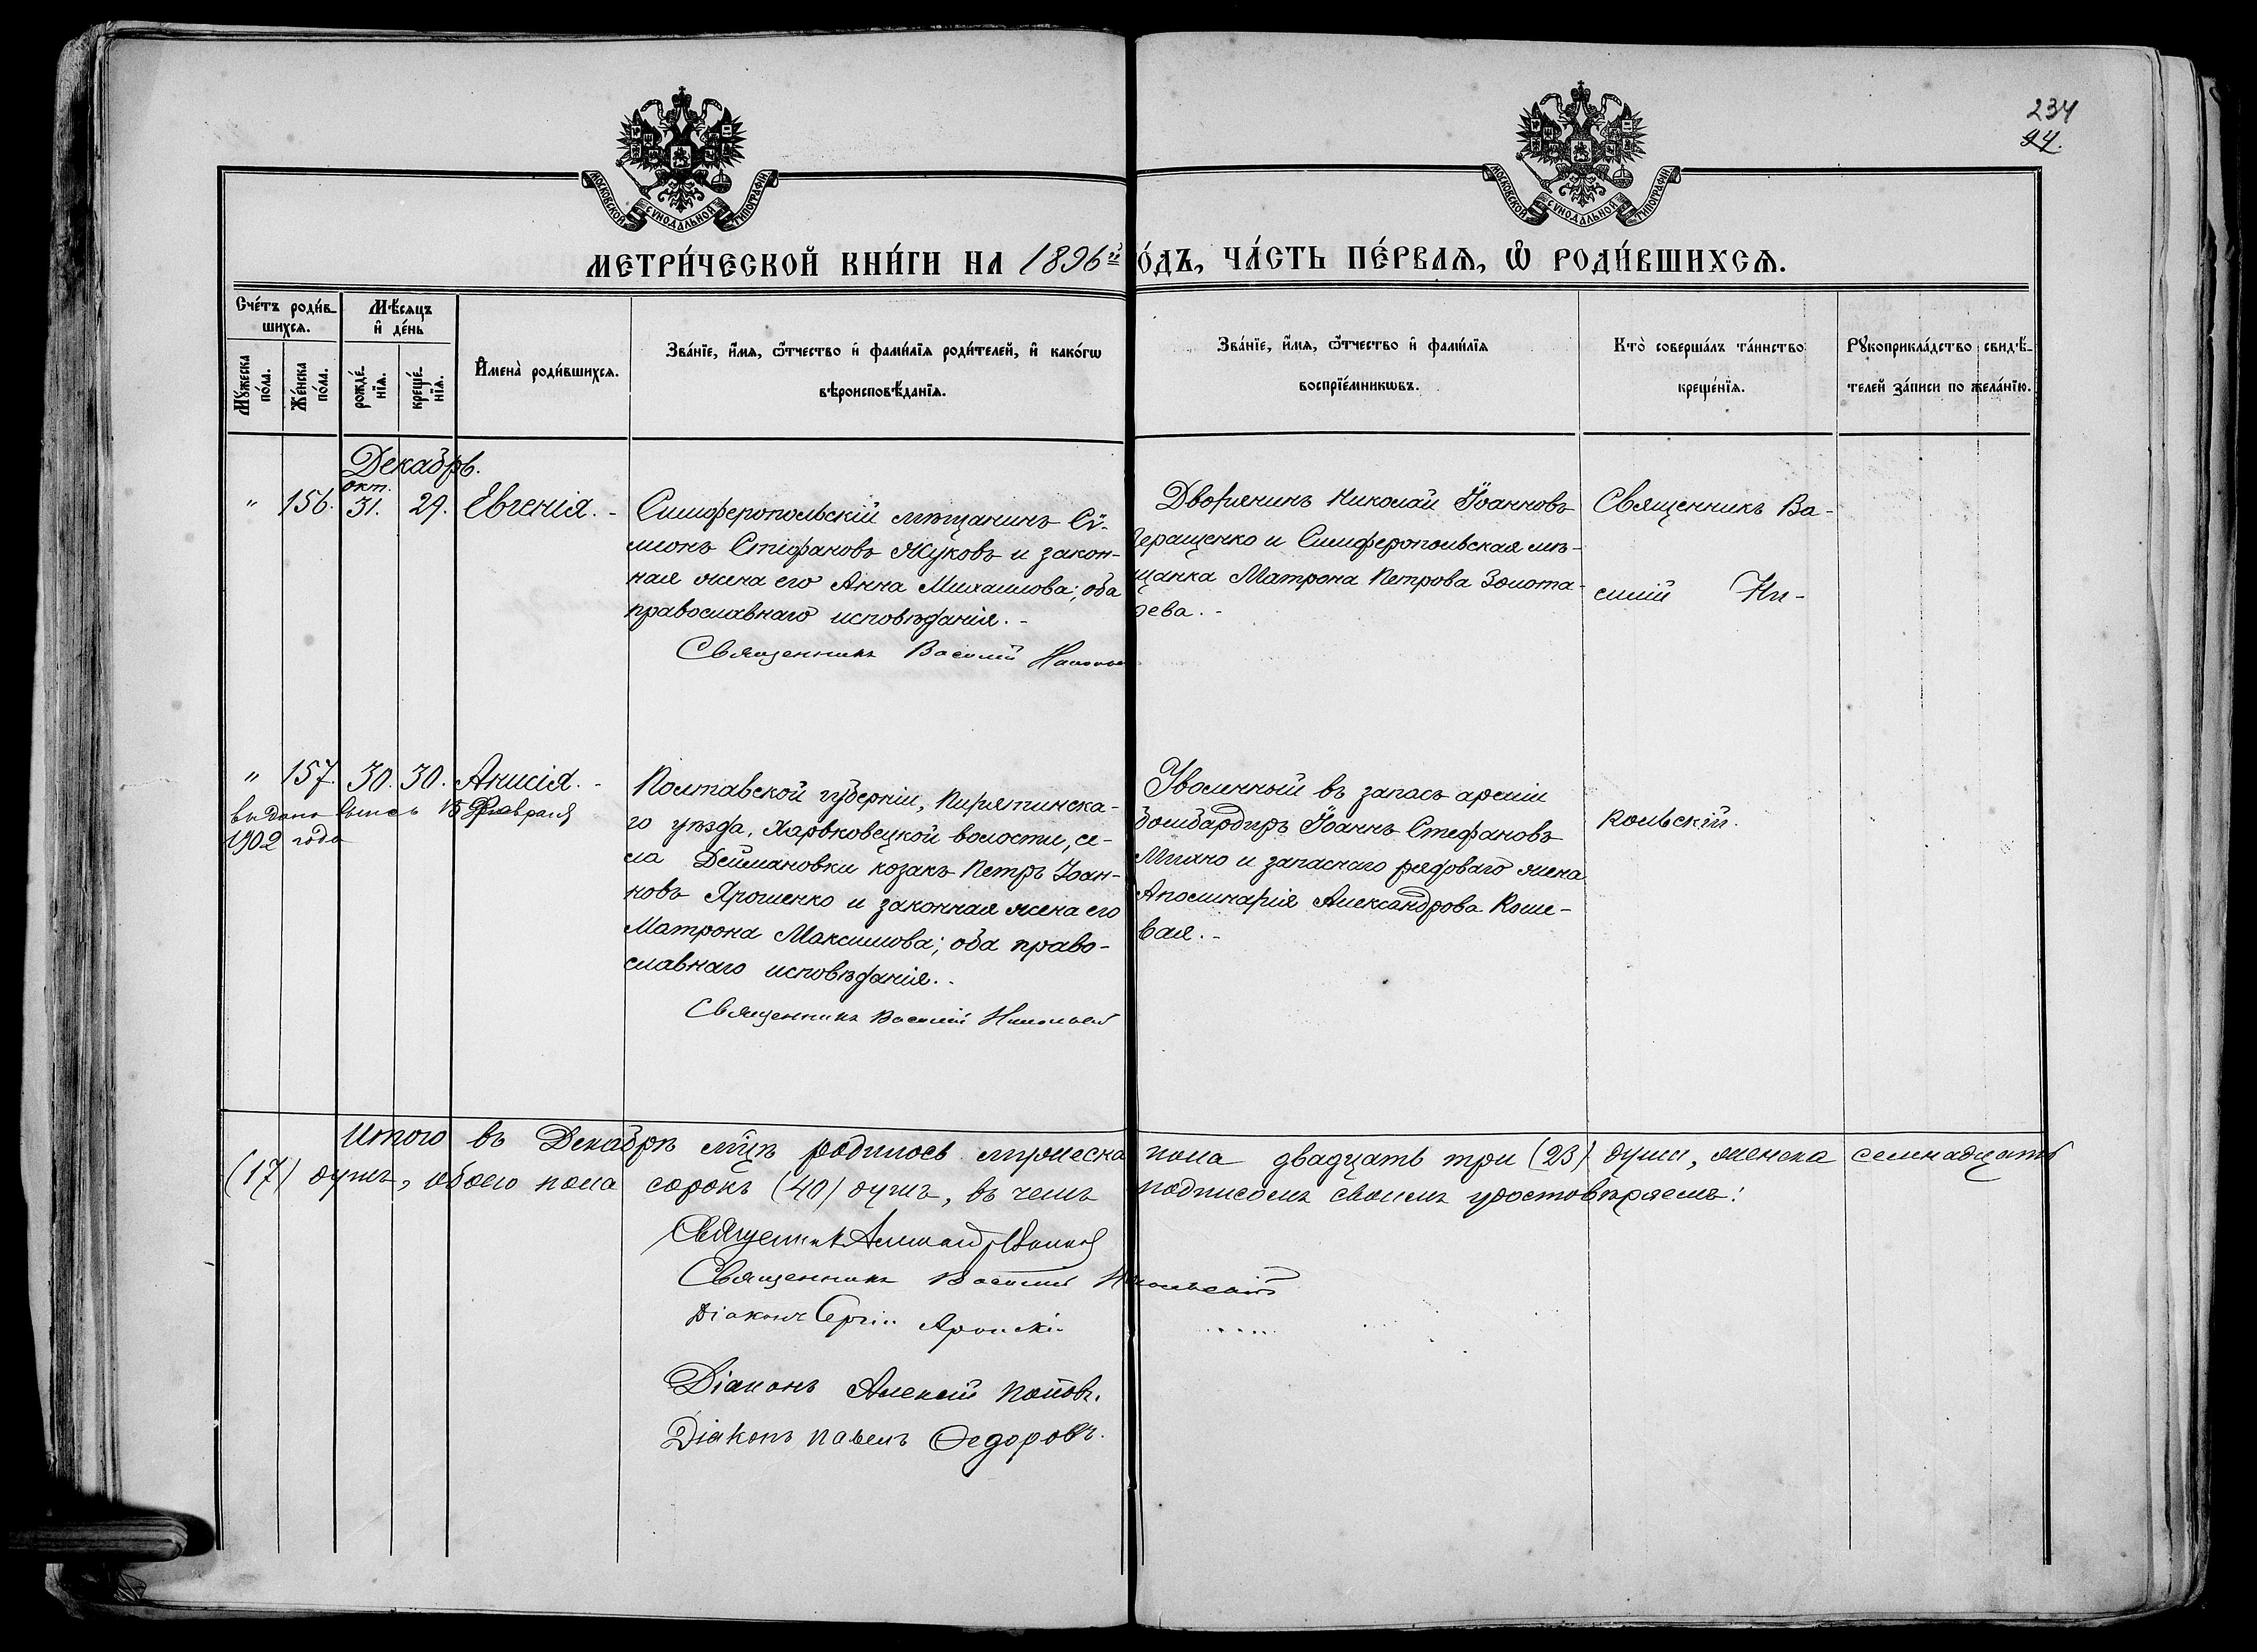 234
94.
МОСКОВСКОЙ СѴНОДАЛЬНОЙ ТИПОГРАФІИ
МОСКОВСКОЙ СѴНОДАЛЬНОЙ ТИПОГРАФІИ
МЕТРИ́ЧЕСКОЙ КНИ́ГИ НА 1896й
О́ДЪ, ЧА́СТЬ ПЕ́РВАѦ, Ѽ РОДИ́ВШИХСѦ.
Сче́тъ роди́в-
шихсѧ.
Мꙋ́жеска по́ла.
Же́нска по́ла.
Мѣ́сѧцъ
и҆ де́нь
рожде́нїѧ.
креще́нїѧ.
И҆мена̀ роди́вшихсѧ.
Зва́нїе, и҆́мѧ, ѻ҆́тчество и҆ фами́лїѧ роди́телей, и҆ како́гѡ
вѣроисповѣ́данїѧ.
Зва́нїе, и҆́мѧ, ѻ҆́тчество и҆ фами́лїѧ
воспрїе́мникѡвъ.
Кто̀ соверша́лъ та́инство
креще́нїѧ.
Рꙋкоприкла́дство свидѣ́-
телей за́писи по жела́нїю.
Декабрь.
окт.
" 156. 31. 29. Евгенія. -
Симферопольскій мѣщанинъ Сѵ-
меонъ Стефановъ Жуковъ и закон-
ная жена его Анна Михаилова; оба
православнаго исповѣданія. -
Священникъ Василій
Дворянинъ Николай Іоанновъ
Геращенко и Симферопольская мѣ-
щанка Матрона Петрова Золота-
рева. -
Священникъ Ва-
силій Ни-
" 157. 30. 30. Анисія. -
выдана выпись 15 Февраля
1902 года
Полтавской губерніи, Пирятинска-
го уѣзда, Харьковецкой волости, се-
ла Деймановки козакъ Петръ Іоан-
новъ Ярошенко и законная жена его
Матрона Максимова; оба право-
славнаго исповѣданія. -
Священникъ Василій Никольскій
Уволенный въ запасъ арміи
бомбардиръ Іоаннъ Стефановъ
и запаснаго рядоваго жена
Аполинарія Александрова Коше-
вая. -
кольскій.
Итого въ Декабрѣ мѣцѣ родилось мужеска пола двадцать три (23) души, женска семнадцать
(17) душъ, обоего пола сорокъ (40) душъ, въ чемъ подписомъ своимъ удостовѣряемъ:
Священникъ
Священникъ Василій Никольскій
Діаконъ Сергій
Діаконъ Алексій Поповъ.
Діаконъ Павелъ Ѳедоровъ.